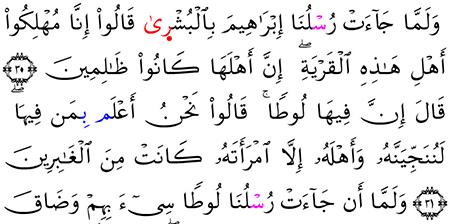 وَلَمَّا جَآءَتْ رُسْلُنَا إِبْرَٰهِيمَ بِالْبُشْرِىٰ قَالُوٓا۟ إِنَّا مُهْلِكُوٓا۟
أَهْلِ هَٰذِهِ الْقَرْيَةِ ۖ إِنَّ أَهْلَهَا كَانُوا۟ ظَٰلِمِينَ ٣٥
قَالَ إِنَّ فِيهَا لُوطًا ۚ قَالُوا۟ نَحْنُ أَعْلَم بِمَن فِيهَا
لَنُنَجِّيَنَّهُۥ وَأَهْلَهُۥٓ إِلَّا امْرَأَتَهُۥ كَانَتْ مِنَ الْغَٰبِرِينَ
٣١ وَلَمَّآ أَن جَآءَتْ رُسْلُنَا لُوطًا سِىٓءَ بِهِمْ وَضَاقَ